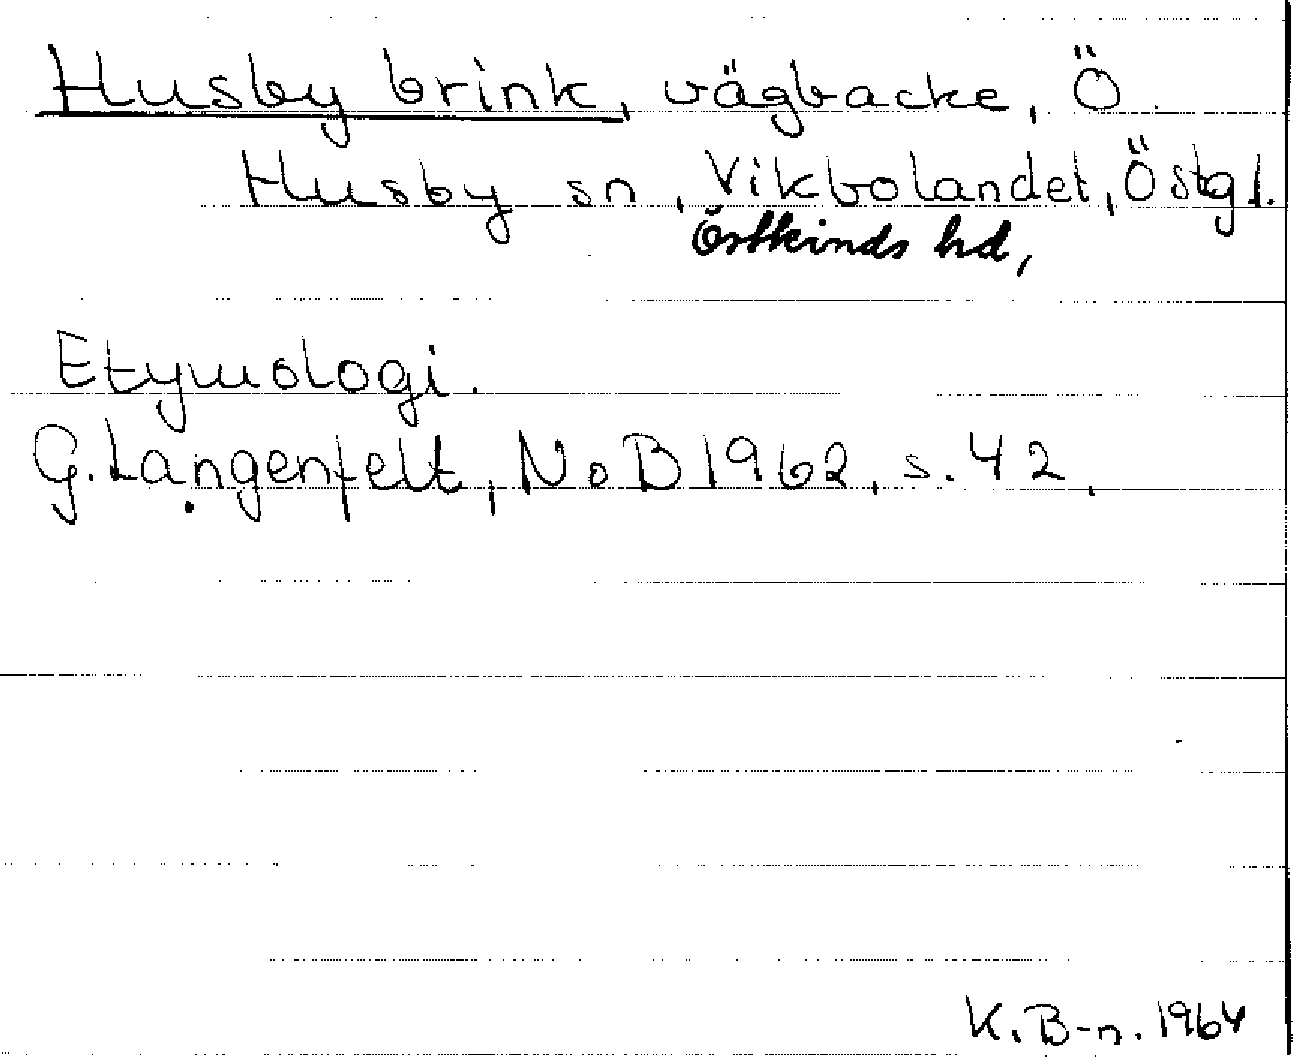 Husby brink, vägbacke, Ö.
Husby sn, Vikbolandet, Östgl.
Östkinds hd,
Etymologi.
G. Langenfelt, NoB 1962, s. 42.
K. B-n. 1964